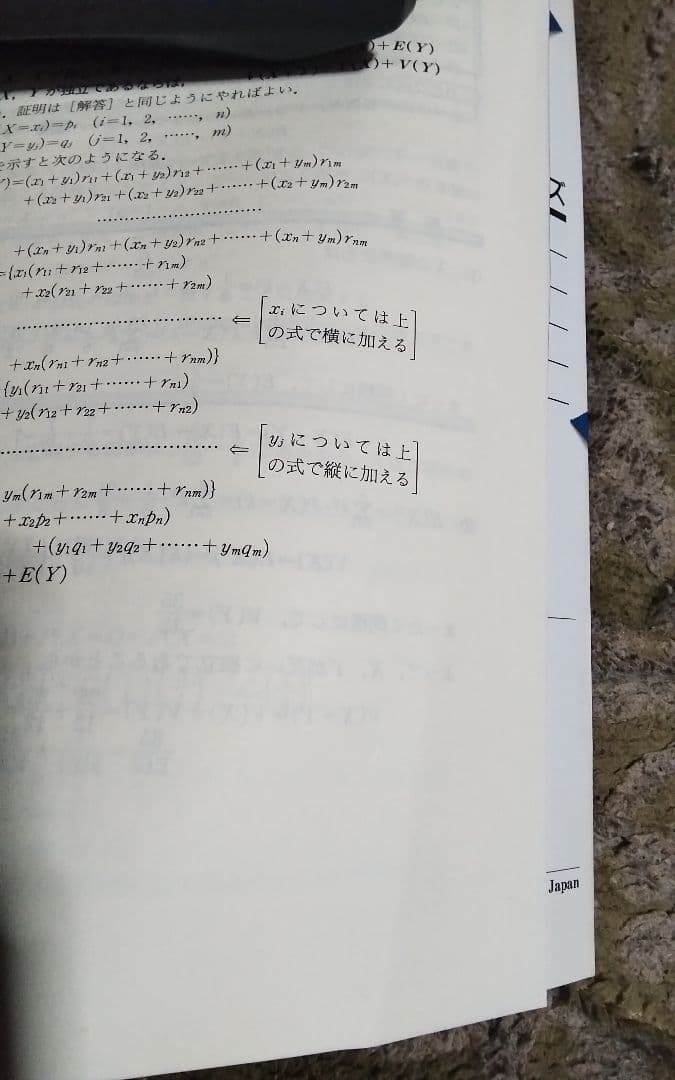 )+E(Y)
)+V(Y)
Yが独立であるならば.
. 証明は［解答］と同じようにやればよい.
X=xi)=pi (i=1, 2, ……, n)
Y=yj)=qj (j=1, 2, ……, m)
を示すと次のようになる.
)=(x1+y1)r11+(x1+y2)r12+……+(x1+ym)r1m
+(x2+y1)r21+(x2+y2)r22+……+(x2+ym)r2m
…………………………
+(xn+y1)rn1+(xn+y2)rn2+……+(xn+ym)rnm
={x1(r11+r12+……+r1m)
+x2(r21+r22+……+r2m)
………………………………… ⇐ [xiについては上
の式で横に加える]
+xn(rn1+rn2+……+rnm)}
{y1(r11+r21+……+rn1)
+y2(r12+r22+……+rn2)
………………………………… ⇐ [yjについては上
の式で縦に加える]
ym(r1m+r2m+……+rnm)}
+x2p2+……+xnpn)
+(y1q1+y2q2+……+ymqm)
+E(Y)
ズ
Japan